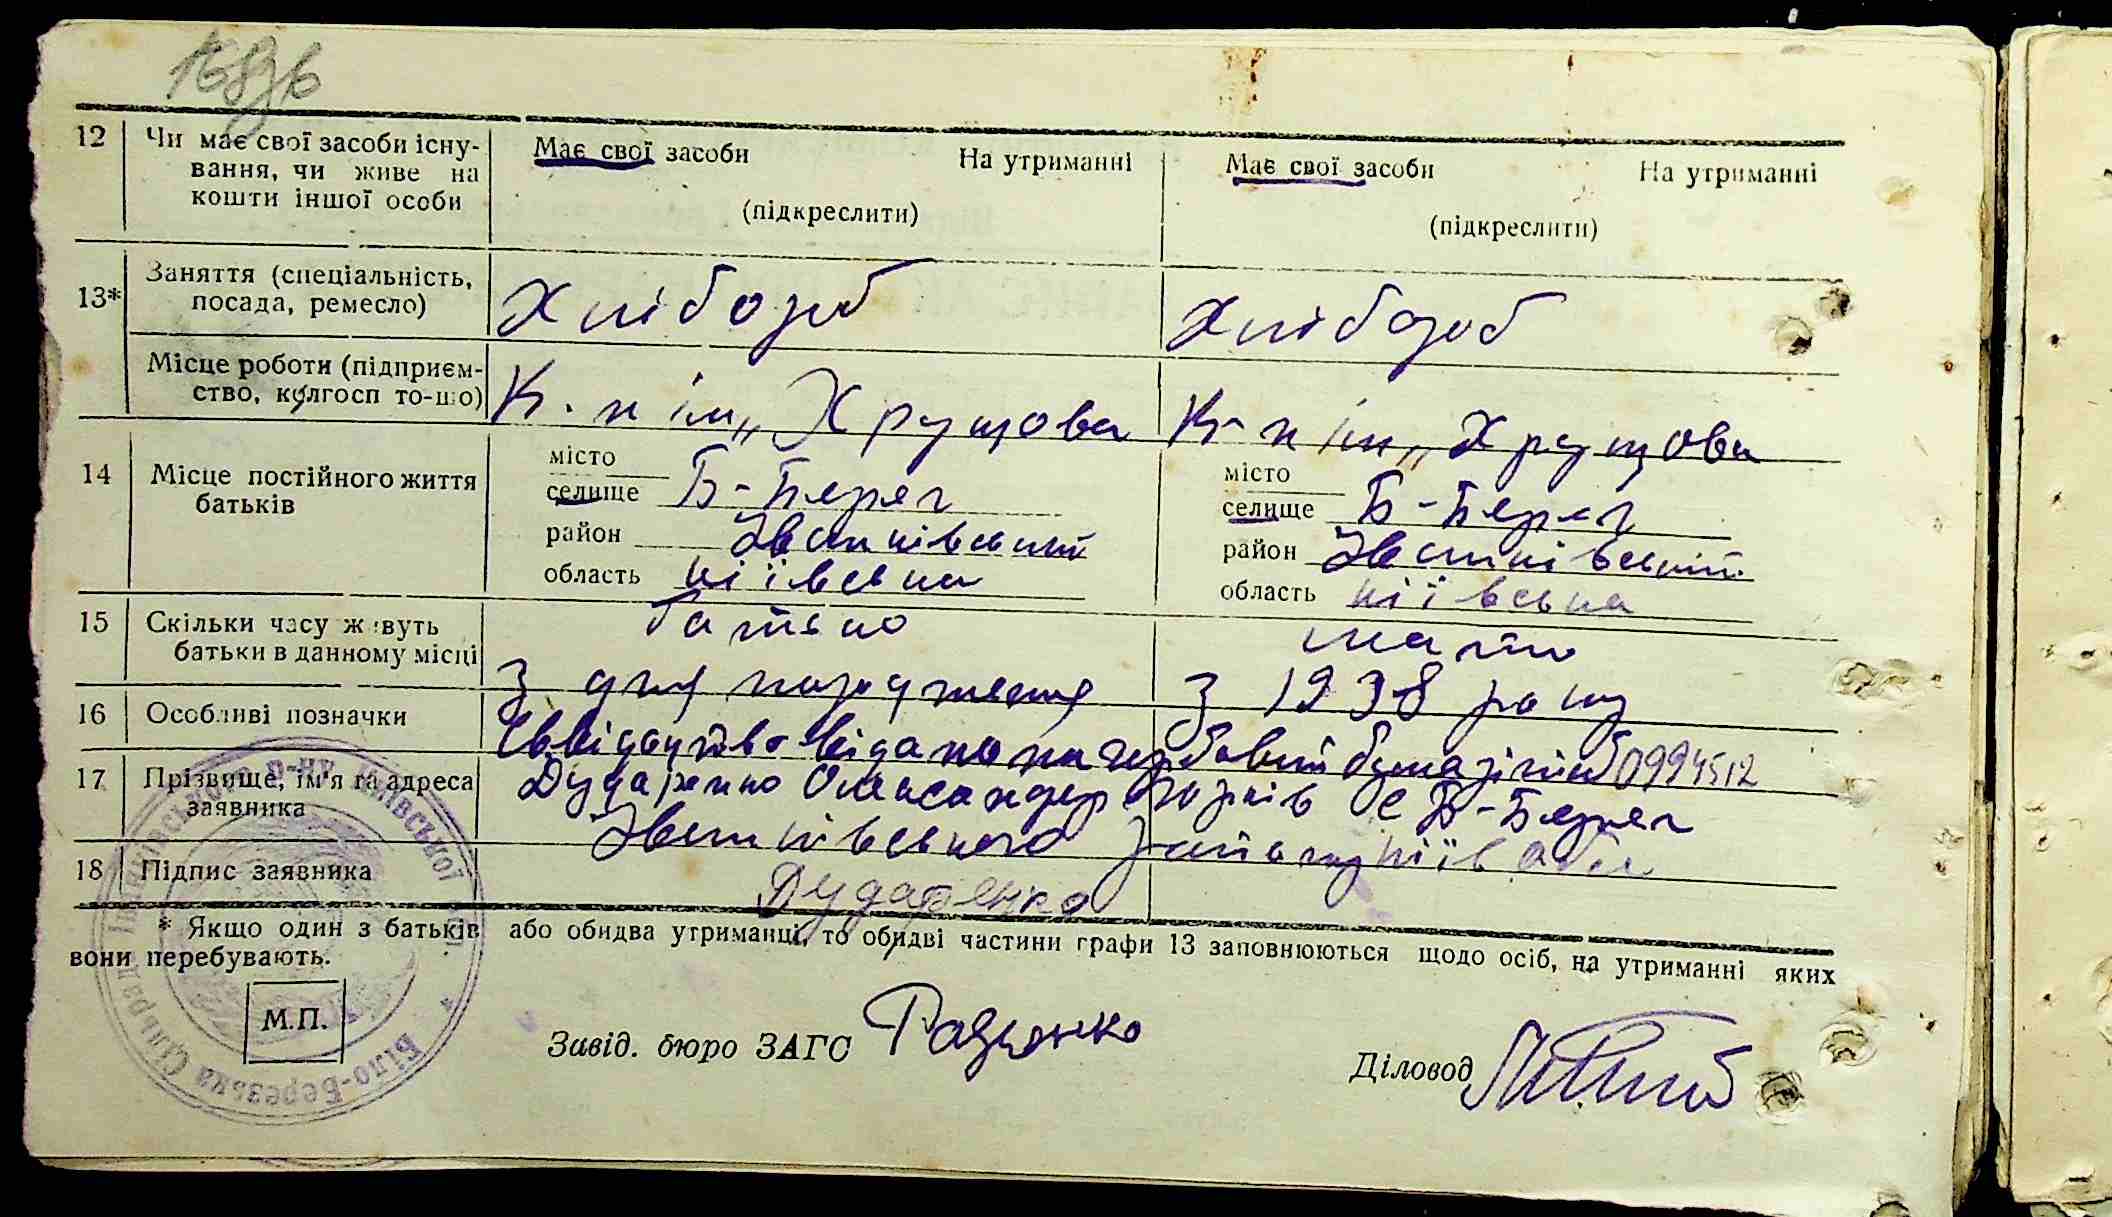 168зв
12 Чи має свої засоби існу- Має свої засоби На утриманні Має свої засоби На утриманні
вання, чи живе на
кошти іншої особи (підкреслити) (підкреслити)
13* Заняття (спеціальність, Хлібороб Хлібороб
посада, ремесло)
Місце роботи (підприєм- К-п ім „ Хрущова К-п ім „ Хрущова
ство, колгосп то-що)
14 Місце постійного життя місто місто
батьків селище Б-Берег селище Б-Берег
район Іванківський район Іванківський
область київська область київська
15 Скільки часу живуть батько мати
батьки в данному місці З дня народження З 1938 року
16 Особливі позначки Свідоцтво видано на гербовій бумазі 0994512
17 Прізвище, ім'я та адреса Дударенко Олександер с Б-Берег
заявника Іванківського району київ обл
18 Підпис заявника Дударенко
* Якщо один з батьків або обидва утриманці, то обидві частини графи 13 заповнюються щодо осіб, на утриманні яких
вони перебувають.
М.П.
Завід. бюро ЗАГС Радченко
Діловод
Біло-Березька Сільрада Іванківського р-ну Київської обл.